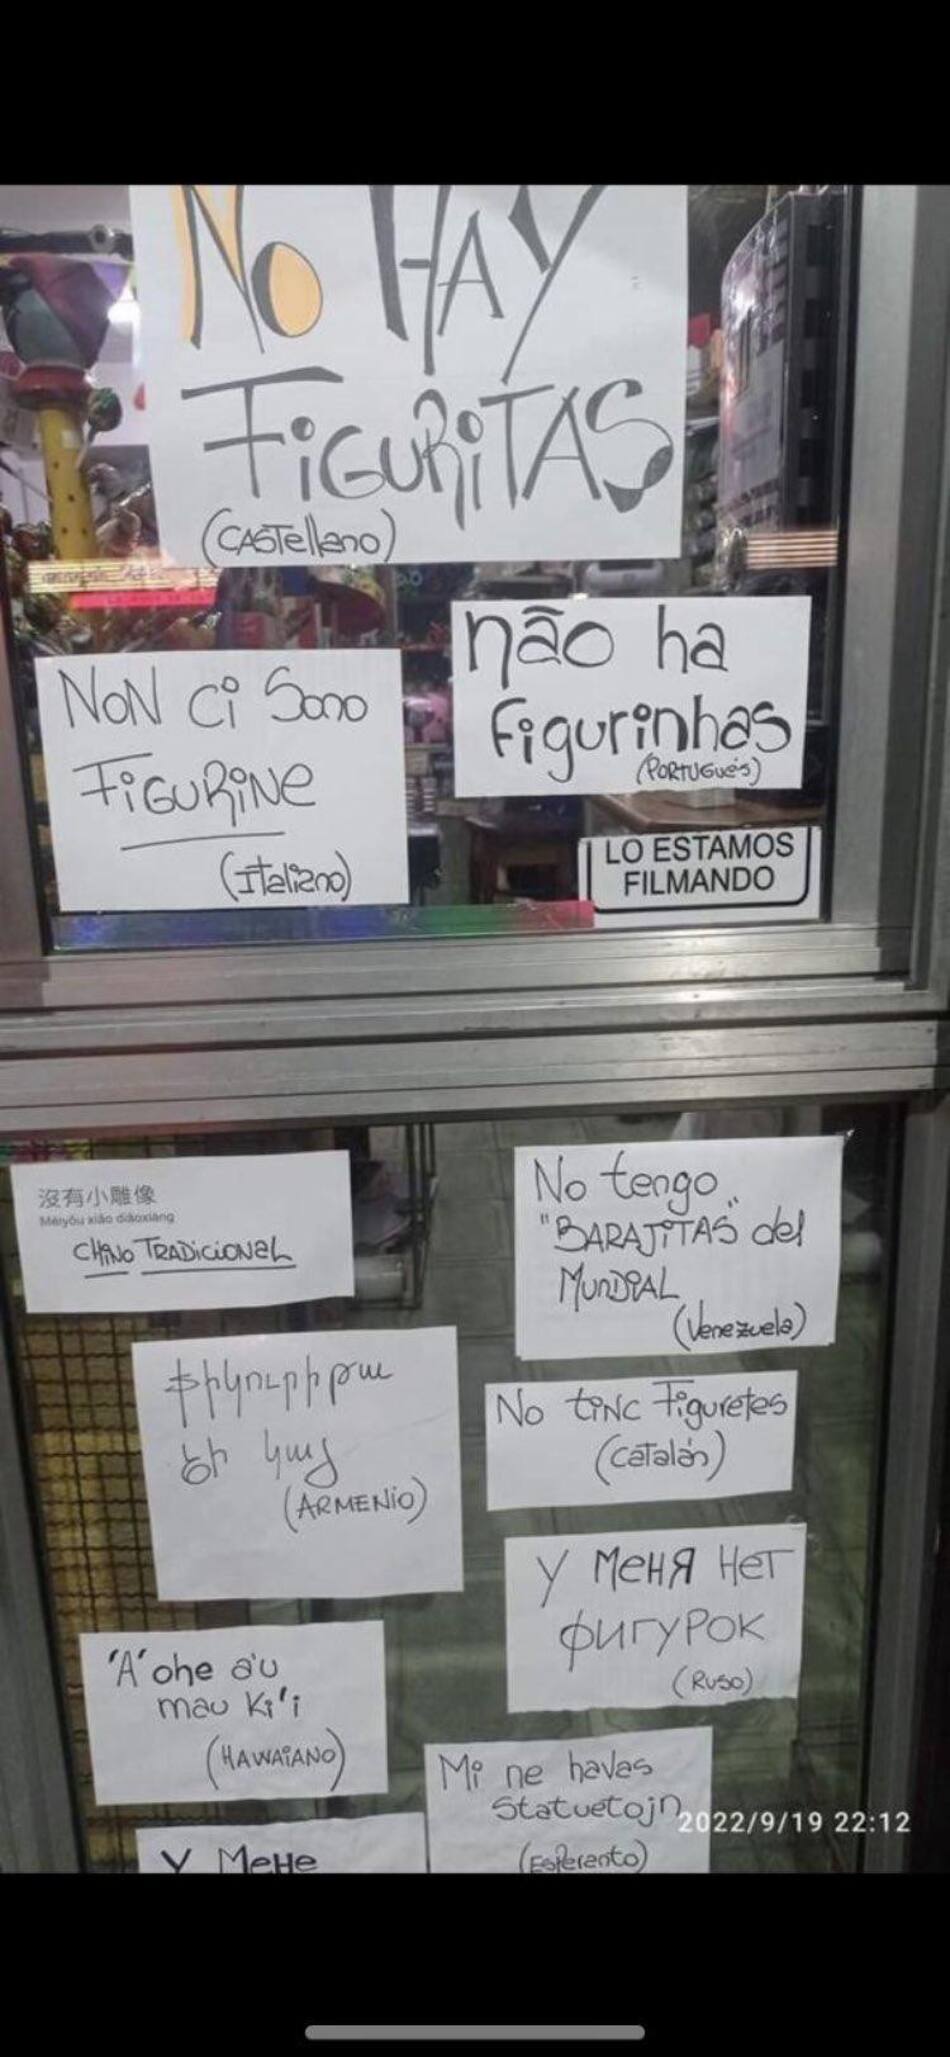 No HAY
FiGURiTAS
(CASTellano)
não ha
figurinhas
(PORTUGués)
NoN ci Sono
FiGURiNe
(Italiano)
LO ESTAMOS
FILMANDO
沒有小雕像
Méiyǒu xiǎo diāoxiàng
CHiNo TRADiCioNaL
No tengo
"BARAJiTAS" del
MUnDiAL
(Venezuela)
ֆիկուրիթա
չի կայ
(ARMENiO)
No tiNC Figuretes
(Catalán)
У МеНЯ НеТ
ФИГУРОК
(RUSO)
'A'ohe a'u
mau Ki'i
(HAWAiANO)
Mi ne havas
Statuetojn
(Esperanto)
2022/9/19 22:12
У МеНе